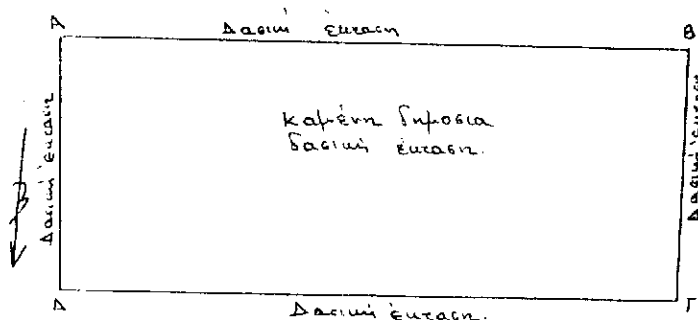 Α Δασική έκταση Β
Δασική έκταση
καμένη δημοσια
δασική έκταση.
Δασική έκταση
Δ Δασική έκταση. Γ